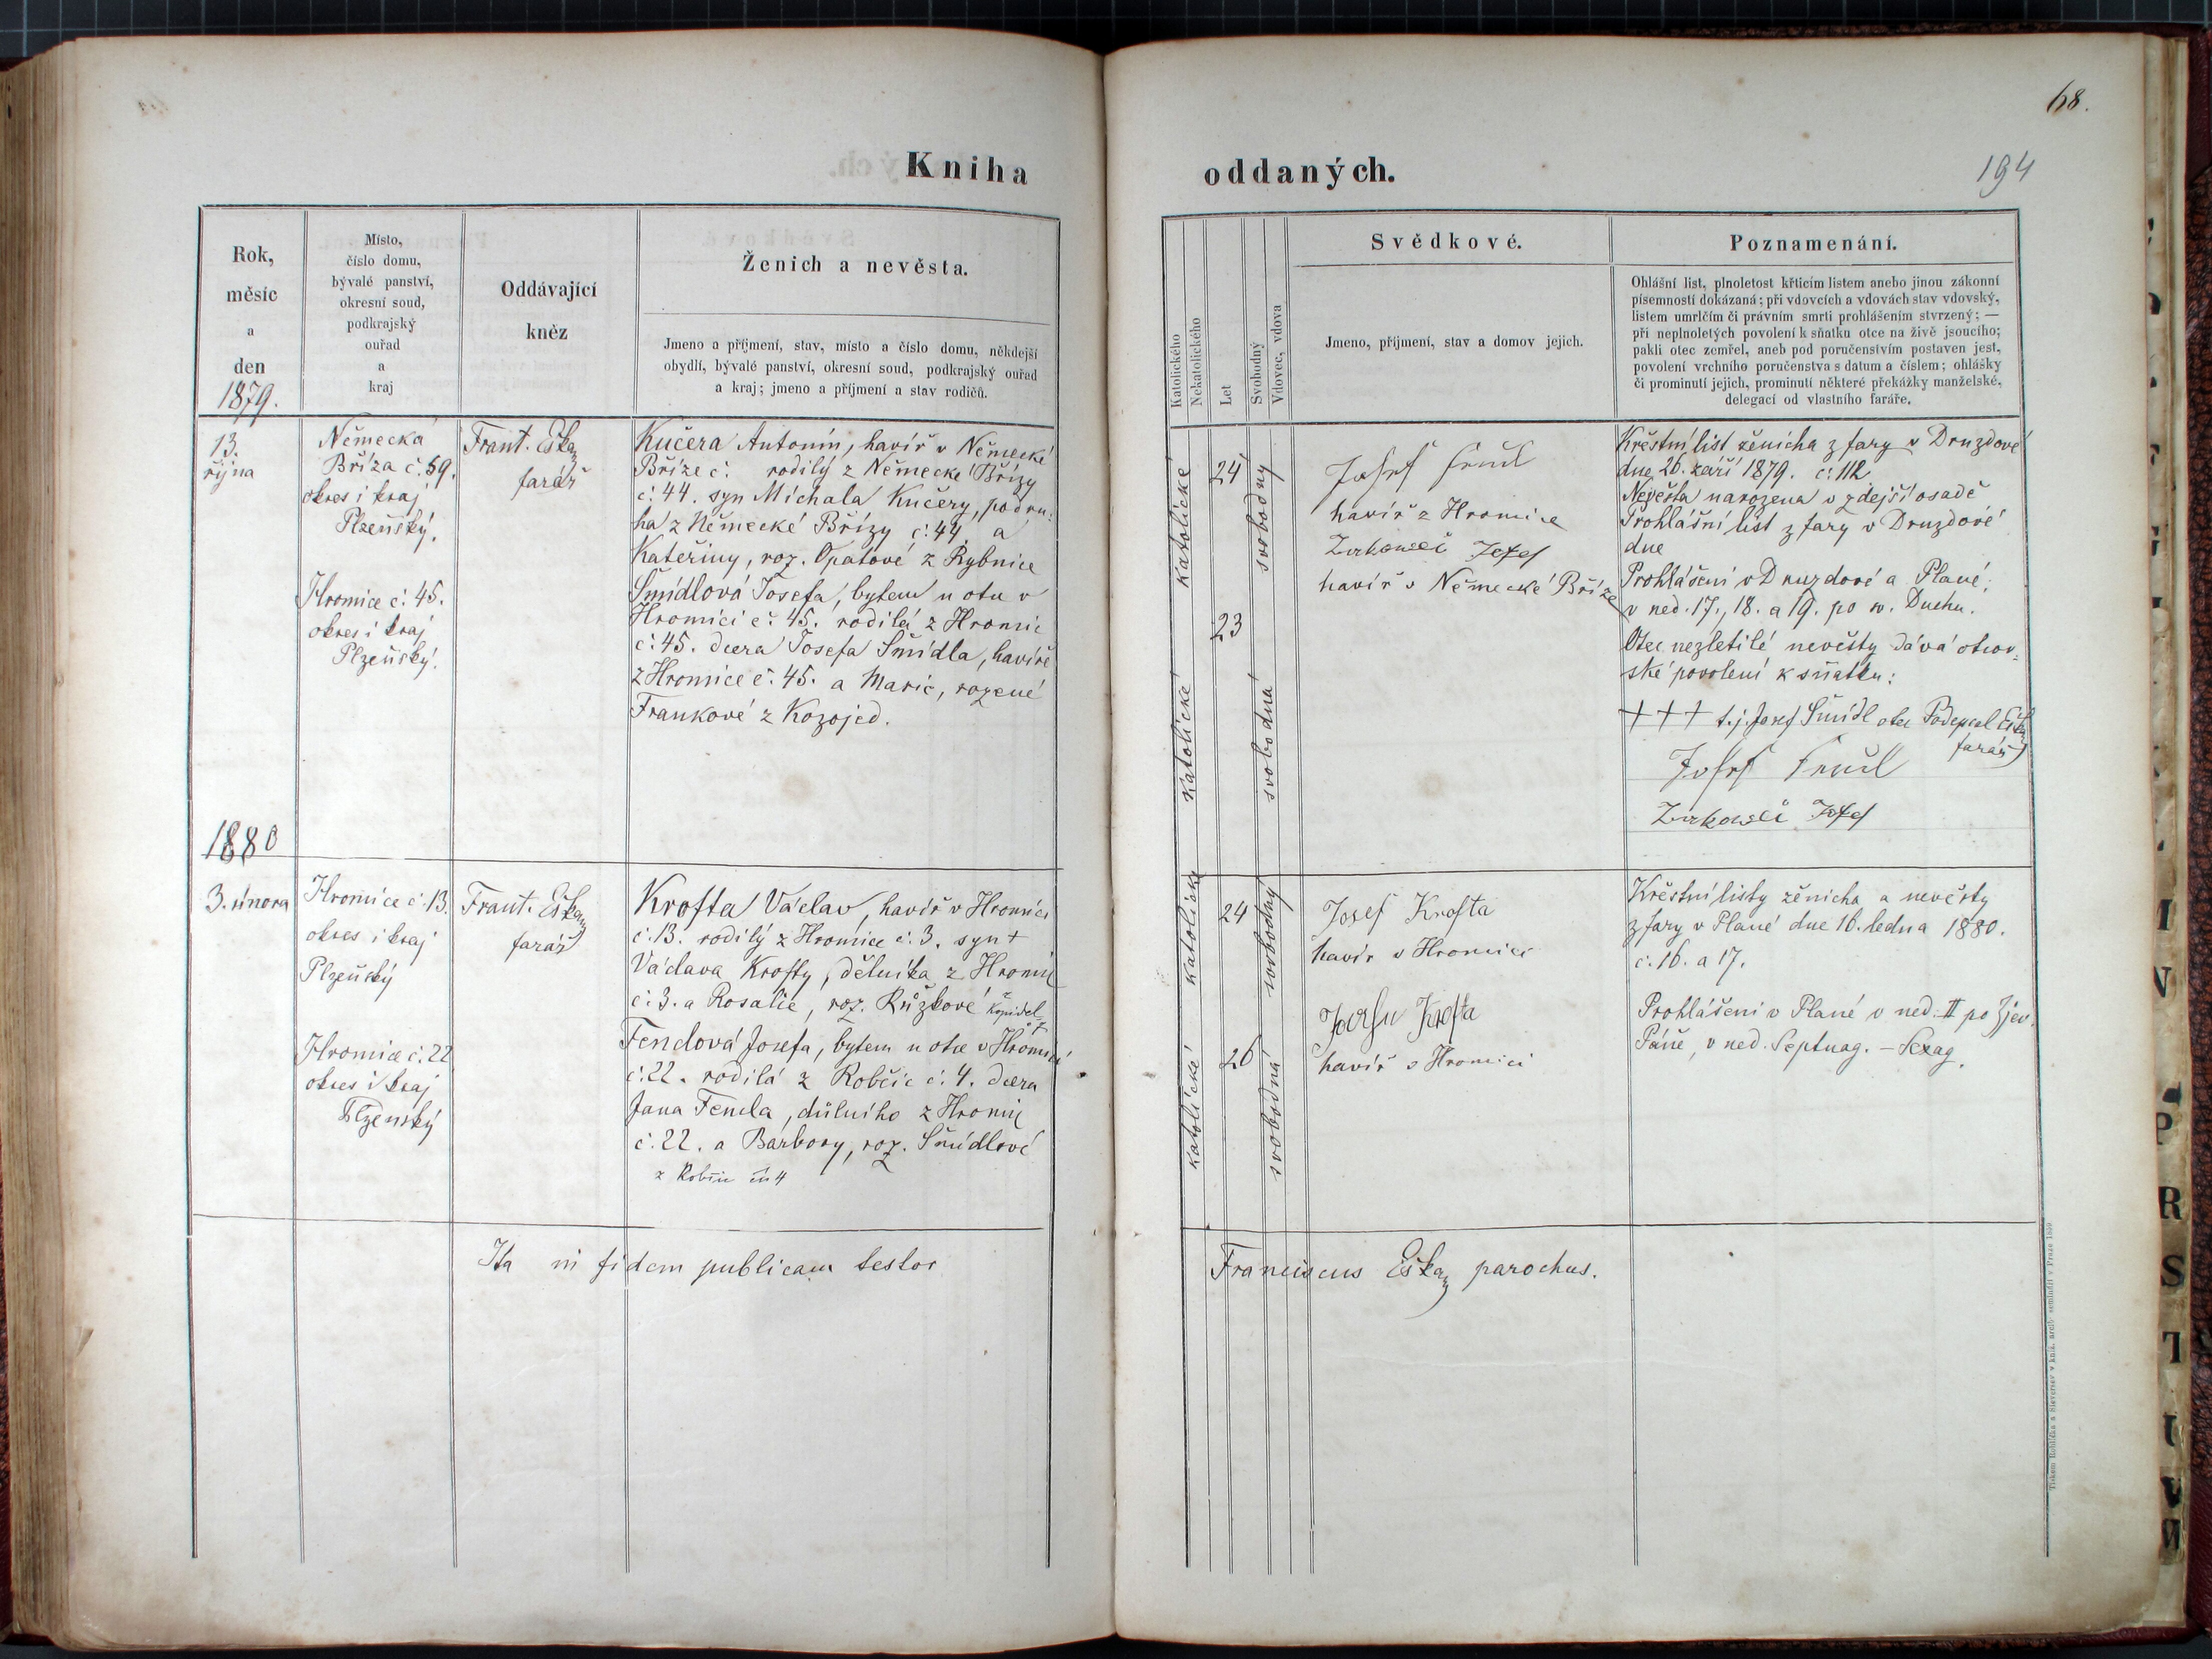 68.
194
Kniha oddaných.
Rok,
měsíc
a
den
1879.
Místo,
číslo domu,
bývalé panství,
okresní soud,
podkrajský
ouřad
a
kraj
Oddávající
kněz
Ženich a nevěsta.
Jmeno a příjmení, stav, místo a číslo domu, někdejší
obydlí, bývalé panství, okresní soud, podkrajský ouřad
a kraj; jmeno a příjmení a stav rodičů.
Katolického
Nekatolického
Let
Svobodný
Vdovec, vdova
Svědkové.
Jmeno, příjmení, stav a domov jejich.
Poznamenání.
Ohlášní list, plnoletost křticím listem anebo jinou zákonní
písemností dokázaná; při vdovcích a vdovách stav vdovský,
listem umrlčím či právním smrti prohlášením stvrzený; —
při neplnoletých povolení k sňatku otce na živě jsoucího;
pakli otec zemřel, aneb pod poručenstvím postaven jest,
povolení vrchního poručenstva s datum a číslem; ohlášky
či prominutí jejich, prominutí některé překážky manželské,
delegací od vlastního faráře.
13.
října
Německá
Bříza č. 59.
okres i kraj
Plzeňský.
Hromice č. 45.
okres i kraj
Plzeňský.
Frant.
farář
Kučera Antonín, havíř v Německé
Bříze č. rodilý z Německé Břízy
č. 44. syn Michala Kučery, podru-
ha z Německé Břízy č. 44. a
Kateřiny, roz. Opatové z Rybnice
Šmídlová Josefa, bytem u otce v
Hromici č. 45. rodilá z Hromic
č. 45. dcera Josefa Šmídla, havíře
z Hromice č. 45. a Marie, rozené
Frankové z Kozojed.
katolické
katolické
24
23
svobodný
svobodná
Josef
havíř z Hromice
Josef
havíř v Německé Bříze
Křestní list ženicha z fary v Druzdové
dne 26. září 1879. č. 112
Nevěsta narozena v zdejší osadě
Prohlášní list z fary v Druzdové
dne
Prohlášeni v Druzdové a Plané.
v ned. 17., 18. a 19. po sv. Duchu.
Otec nezletilé nevěsty dává otcov-
ské povolení k sňatku:
+++ t.j. Josef Šmídl otec Podepsal
farář
Josef
Josef
1880
3. února
Hromice č. 13.
okres i kraj
Plzeňský
Hromice č. 22
okres i kraj
Plzenský
Frant.
farář
Krofta Václav, havíř v Hromici
č. 13. rodilý z Hromice č. 3. syn +
Václava Krofty, dělníka z Hromic
č. 3. a Rosalie, roz. Růžkové
Fendlová Josefa, bytem u otce v Hromici
č. 22. rodilá z Robčic č. 4. dcera
Jana Fendla, důlního z Hromic
č. 22. a Barbory, roz. Šmídlové
z Robčic čís 4
katolické
katolické
24
26
svobodný
svobodná
Josef Krofta
havíř v Hromici
Krofta
havíř v Hromici
Křestní listy ženicha a nevěsty
z fary v Plané dne 16. ledna 1880.
č. 16. a 17.
Prohlášeni v Plané v ned. II po Zjev.
Páně, v ned. Septuag. – Sexag.
Ita in fidem publicam testor
Franciscus parochus.